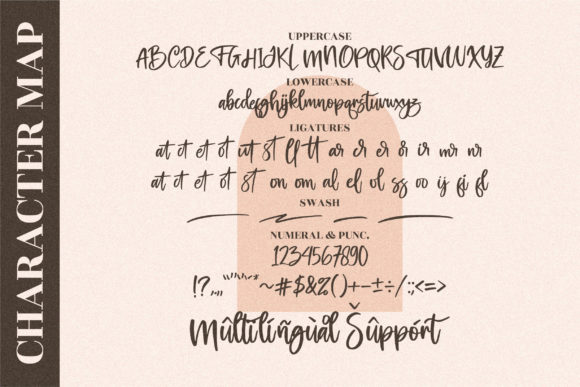 CHARACTER MAP
UPPERCASE
ABCDEFGHIJKLMNOPQRSTUVWXYZ
LOWERCASE
abcdefghijklmnopqrstuvwxyz
LIGATURES
at ct et ot ut st lf tt ar cr er or ir mr nr
at it et ot st on om al el ol ss oo ij fi fl
SWASH
NUMERAL & PUNC.
1234567890
!?,.,,“”‘’-*~#$&%()+-±÷/:;<=>
Mûltîlíñgùål Šûppórt